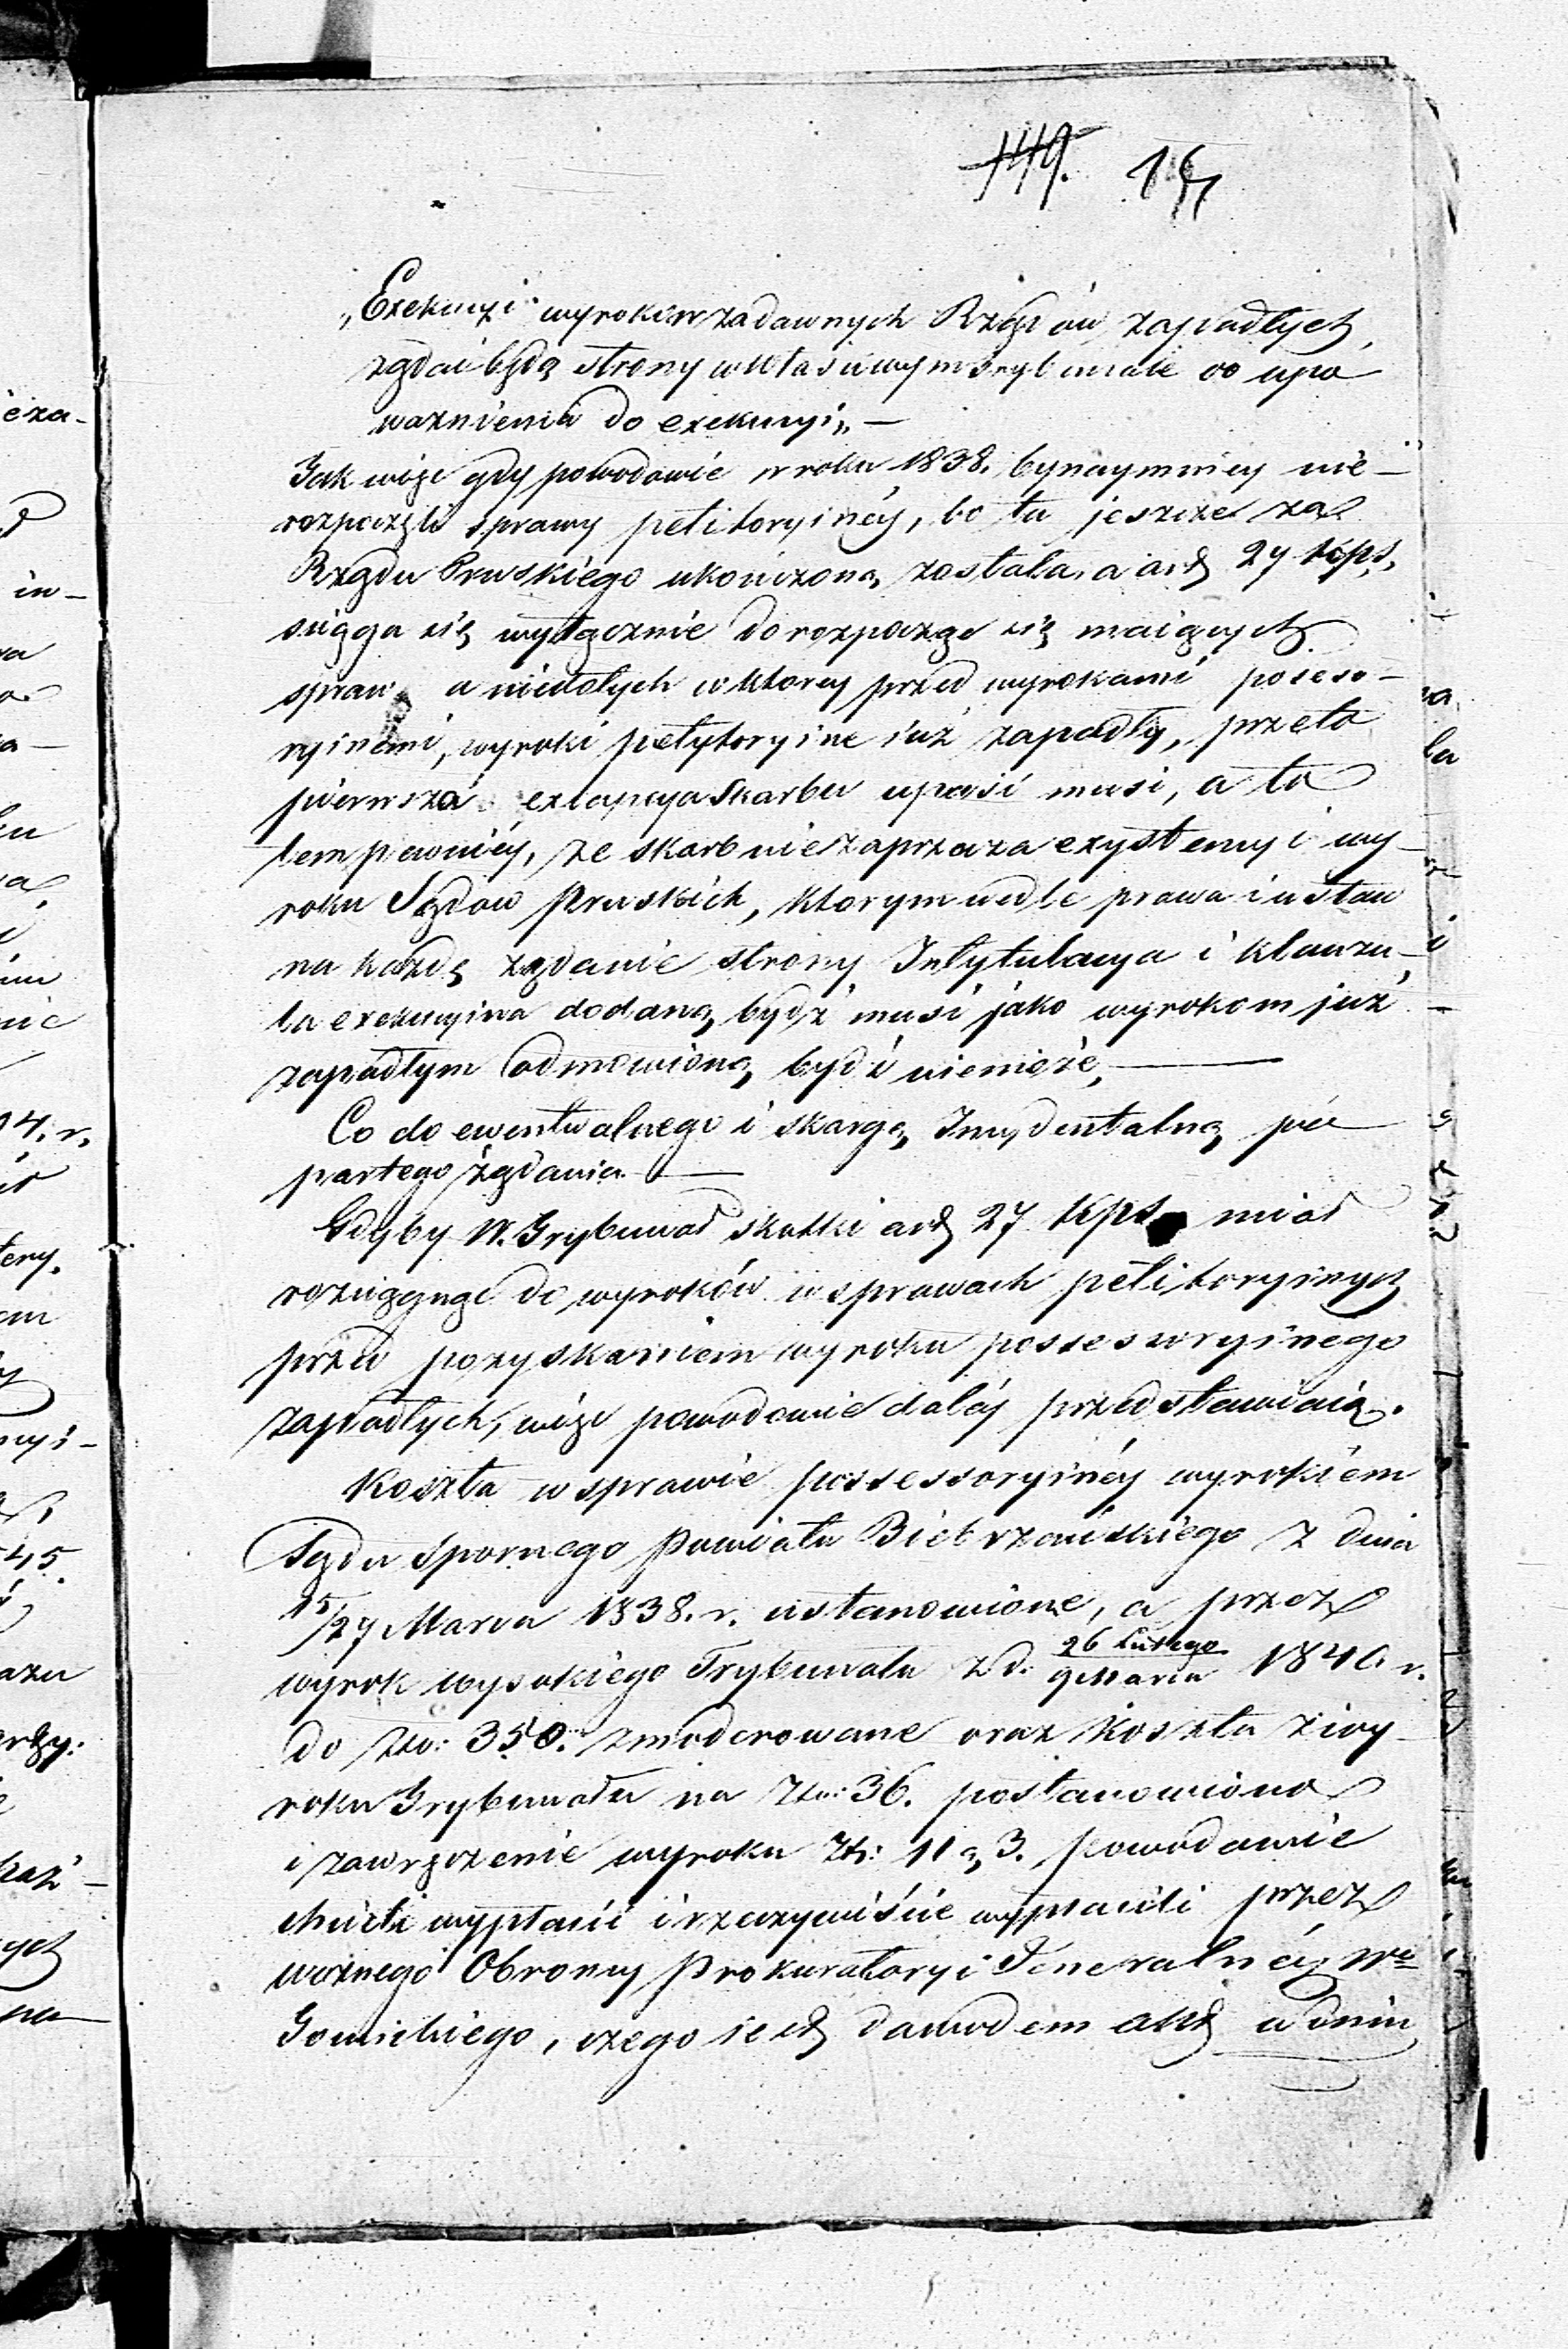 149. 15
„Exekucyi wyroków za dawnych Rządów zapadłych,
żądać będą strony w właściwym Trybunale do upo
ważnienia do exekucyi„ —
Jak więc gdy powodowie w roku 1838. bynaymniey nie —
rozpoczęli sprawy petitoryinéy, bo ta jeszcze za
Rządu Pruskiego ukończoną została, a art 27 Kps.
ściąga się wyłącznie do rozpocząć się maiących
spraw, a nie do tych w ktorey przed wyrokami posesso-
ryinémi, wyroki petytoryine iuż zapadły, przeto
pierwsza excepcya Skarbu upaść musi, a to
tem pewniéy, że skarb nie zaprzecza exystencyi wy-
roku Sądow Pruskich, ktorym wedle prawa i ustaw
na każde żądanie strony Intytulacya i klauzu-
la exekucyina dodaną bydź musi jako wyrokom już
zapadłym odmówioną bydź niemoże, —
Co do ewentualnego i skargą Incydentalną po
partego żądania —
Gdyby W. Trybunał skutki art 27 Kps. miał
rozciągnąć do wyroków w sprawach petitoryinych
przed pozyskaniem wyroku possessoryinego
zapadłych, więc powodowie daléy przedstawiaią.
Koszta w sprawie possessoryinéy wyrokiem
Sądu Spornego Powiatu Biebrzańskiego z dnia
15/27 Marca 1838. r. ustanowione, a przez
wyrok wysokiego Trybunału z d. 26 Lutego
9 Marca 1840 r.
do złp: 350. zmoderowane oraz koszta z wy-
roku Trybunału na Złp: 36. postanowiono
i zawręczenie wyroku Zł: 11 g 3. powodowie
chcieli wypłacić i rzeczywiście wypłacili przez
woźnego Obroncy Prokuratoryi Jeneralnéy We
czego iest dowodem akt w dniu